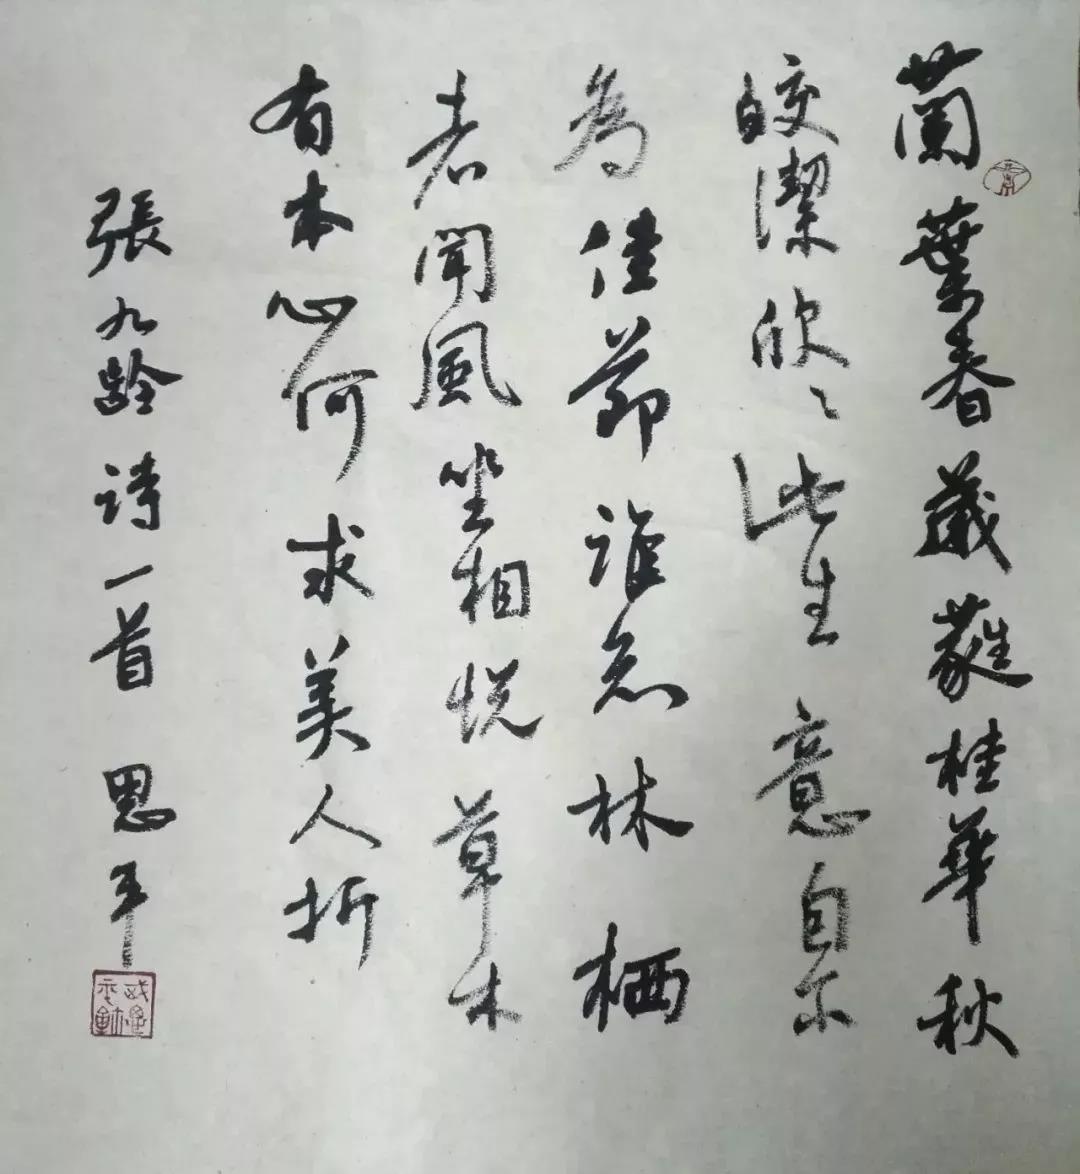 蘭葉春葳蕤桂華秋
皎潔欣〻此生意自尔
為佳節誰知林栖
者聞風坐相悦草木
有本心何求美人折
張九龄诗一首 恩平